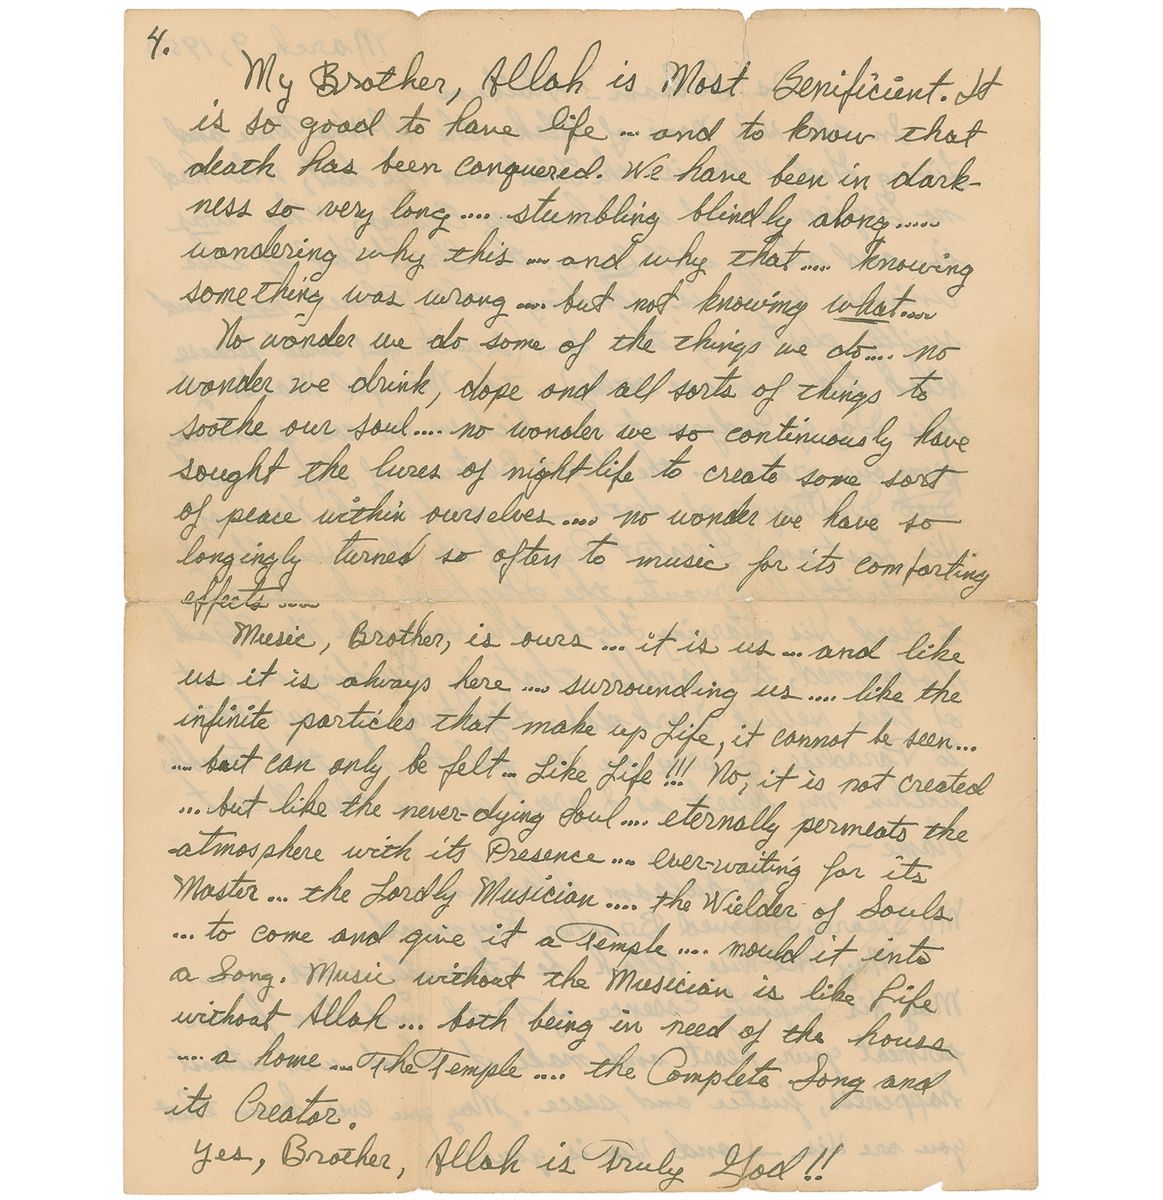 4.
My Brother, Allah is Most Benificient. It
is so good to have life ... and to know that
death has been conquered. We have been in dark-
ness so very long .... stumbling blindly along .....
wondering why this ... and why that ..... knowing
something was wrong .... but not knowing what ....
No wonder we do some of the things we do .... no
wonder we drink, dope and all sorts of things to
soothe our soul .... no wonder we so continuously have
sought the lures of nightlife to create some sort
of peace within ourselves .... no wonder we have so
longingly turned so often to music for its comforting
effects ....
Music, Brother, is ours ... it is us ... and like
us it is always here .... surrounding us .... like the
infinite particles that make up Life, it cannot be seen ...
.... but can only be felt ... Like Life!!! No, it is not created
... but like the never-dying Soul .... eternally permeats the
atmosphere with its Presence .... ever-waiting for its
Master ... the Lordly Musician .... the Wielder of Souls
... to come and give it a Temple .... mould it into
a Song. Music without the Musician is like Life
without Allah ... both being in need of the house
.... a home ... The Temple .... the Complete Song and
its Creator.
Yes, Brother, Allah is Truly God!!
March 9, 195